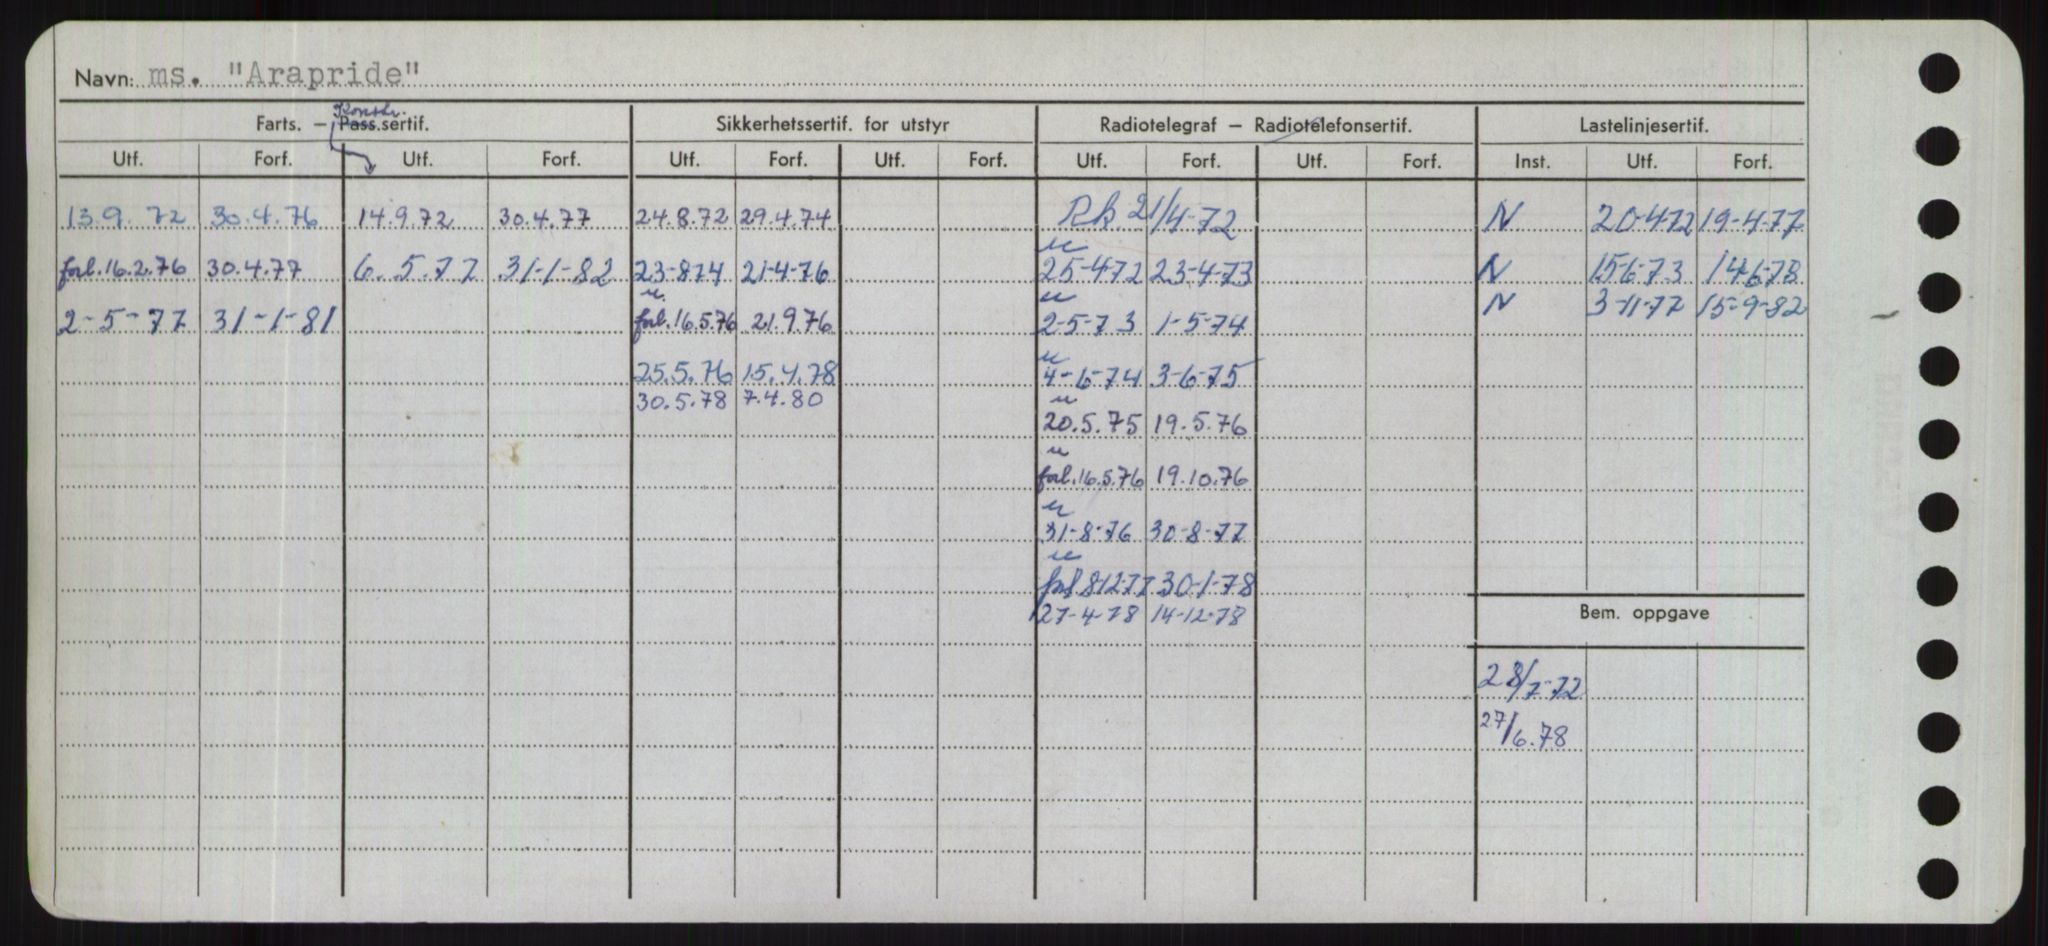 Navn: ms. "Arapride"
Konstr.
Farts. – Pass.sertif. Sikkerhetssertif. for utstyr Radiotelegraf – Radiotelefonsertif. Lastelinjesertif.
Utf. Forf. Utf. Forf. Utf. Forf. Utf. Forf. Utf. Forf. Utf. Forf. Inst. Utf. Forf.
13.9.72 30.4.76 14.9.72 30.4.77 24.8.72 29.4.74 Rk. 21/4-72 N 20-4-72 19-4-77
u
forl.16.2.76 30.4.77 6.5.77 31-1-82 23-8-74 21-4-76 25-4-72 23-4-73 N 15-6-73 14-6-78
u u N 3-11-77 15-9-82
2-5-77 31-1-81 forl.16.5.76 21.9.76 2-5-73 1-5-74
u
25.5.76 15.4.78 4-6-74 3-6-75
30.5.78 7.4.80 u
20.5.75 19.5.76
u
forl.16.5.76 19.10.76
u
31-8-76 30-8-77
u
forl 8-12-77 30-1-78
27-4-78 14-12-78
Bem. oppgave
28/7-72
27/6.78